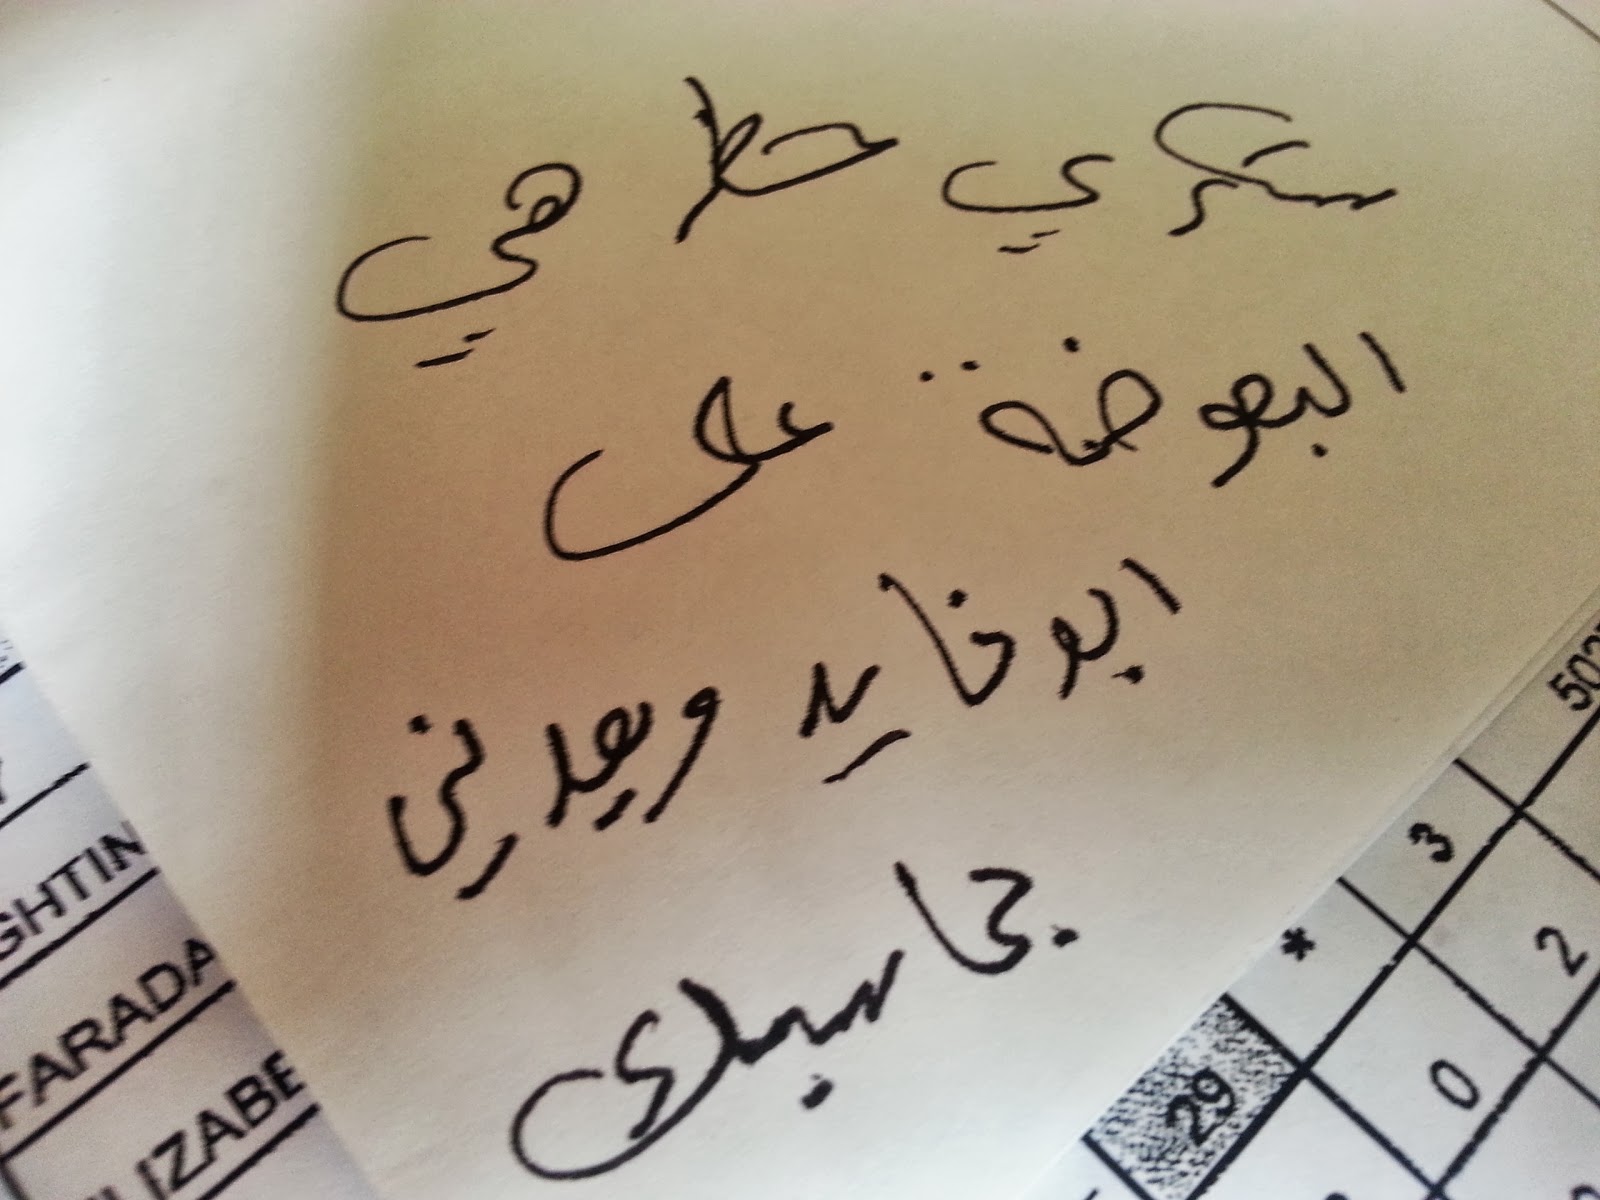 سكري خط هي
البعوضة على
ابو فايد ويهديني
بجا سبلاى
GHTIN
FARADA
LIZABE
502
3
*
2
29
0